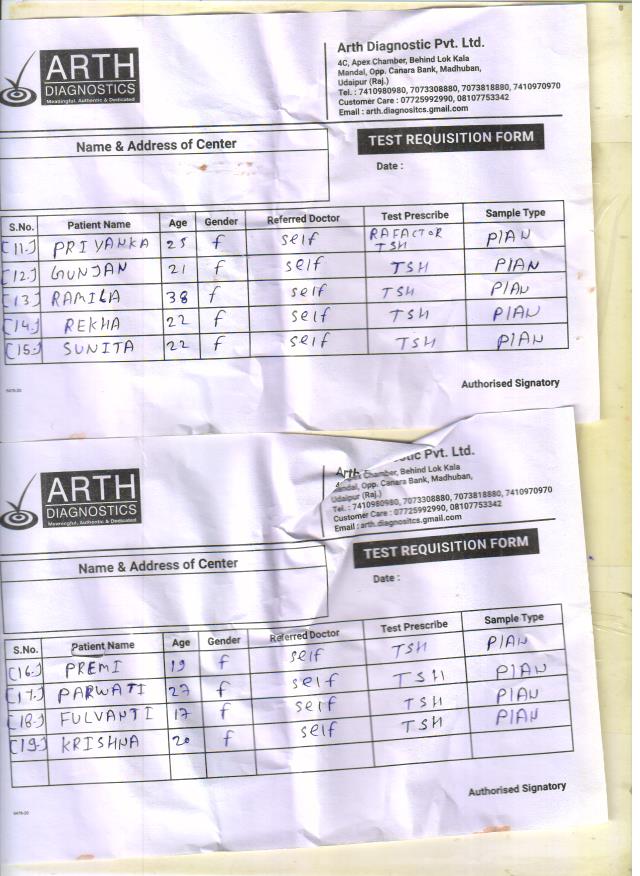 ARTH
DIAGNOSTICS
Meaningful, Authentic & Dedicated
Arth Diagnostic Pvt. Ltd.
4C, Apex Chamber, Behind Lok Kala
Mandal, Opp. Canara Bank, Madhuban,
Udaipur (Raj.)
Tel. : 7410980980, 7073308880, 7073818880, 7410970970
Customer Care : 07725992990, 08107753342
Email : arth.diagnositcs.gmail.com
Name & Address of Center
TEST REQUISITION FORM
Date :
S.No. Patient Name Age Gender Referred Doctor Test Prescribe Sample Type
[11.] PRIYANKA 25 f self RAFACTOR TSH PIAN
[12.] GUNJAN 21 f self TSH PIAN
[13.] RAMILA 38 f self TSH PIAN
[14.] REKHA 22 f self TSH PIAN
[15.] SUNITA 22 f self TSH PIAN
Authorised Signatory
ARTH
DIAGNOSTICS
Meaningful, Authentic & Dedicated
Arth tic Pvt. Ltd.
Chamber, Behind Lok Kala
Mandal, Opp. Canara Bank, Madhuban,
Udaipur (Raj.)
Tel. : 7410980980, 7073308880, 7073818880, 7410970970
Customer Care : 07725992990, 08107753342
Email : arth.diagnositcs.gmail.com
Name & Address of Center
TEST REQUISITION FORM
Date :
S.No. Patient Name Age Gender Referred Doctor Test Prescribe Sample Type
[16.] PREMI 19 f self TSH PIAN
[17.] PARWATI 27 f self TSH PIAN
[18.] FULVANTI 17 f self TSH PIAN
[19.] KRISHNA 20 f self TSH PIAN
Authorised Signatory